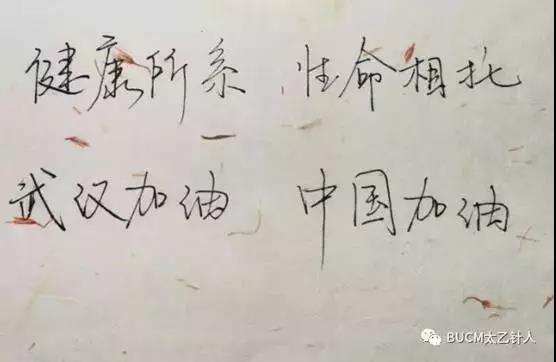 健康所系 性命相托
武汉加油 中国加油
BUCM太乙针人